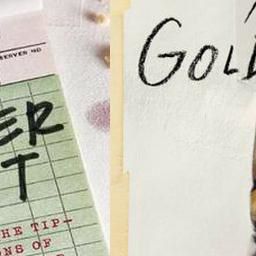 SERVER NO
ER
T
HE TIP-
NS OF
GOLD